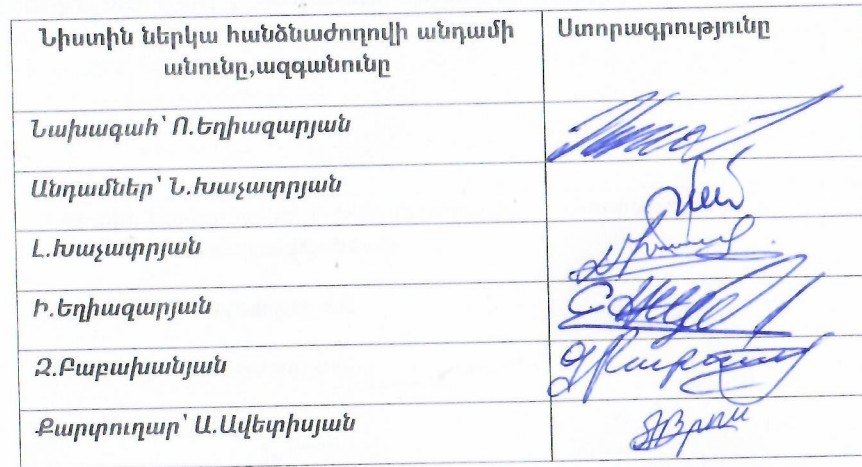 Նիստին ներկա հանձնաժողովի անդամի Ստորագրությունը
անունը,ազգանունը
Նախագահ՝ Ո.Եղիազարյան
Անդամներ՝ Ն.Խաչատրյան
Լ.Խաչատրյան
Ի.Եղիազարյան
Զ.Բաբախանյան
Քարտուղար՝ Ա.Ավետիսյան